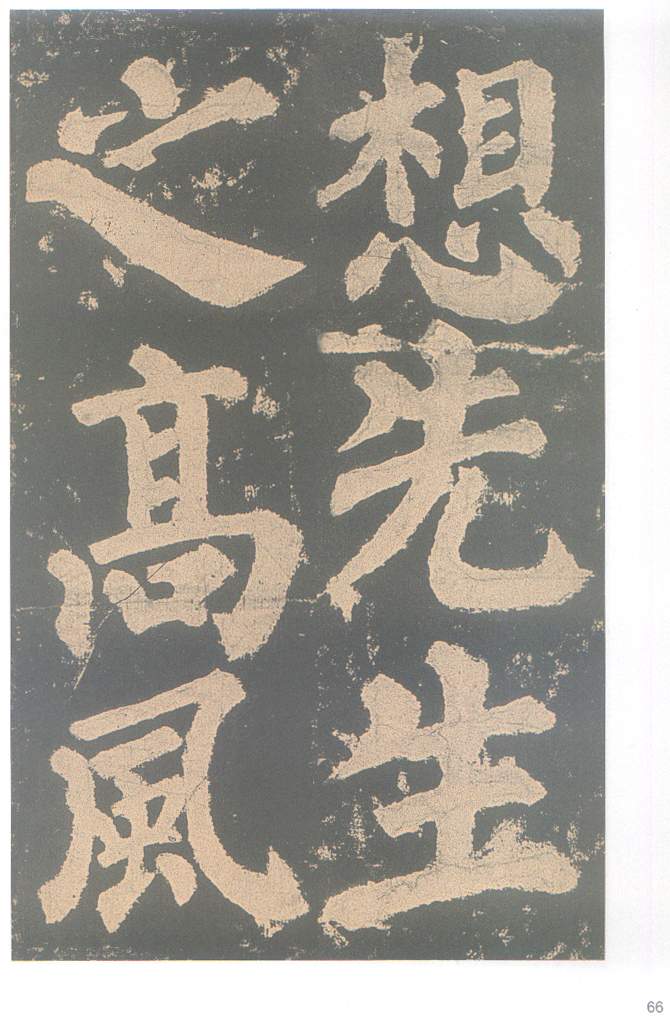 想先生
之高風
66